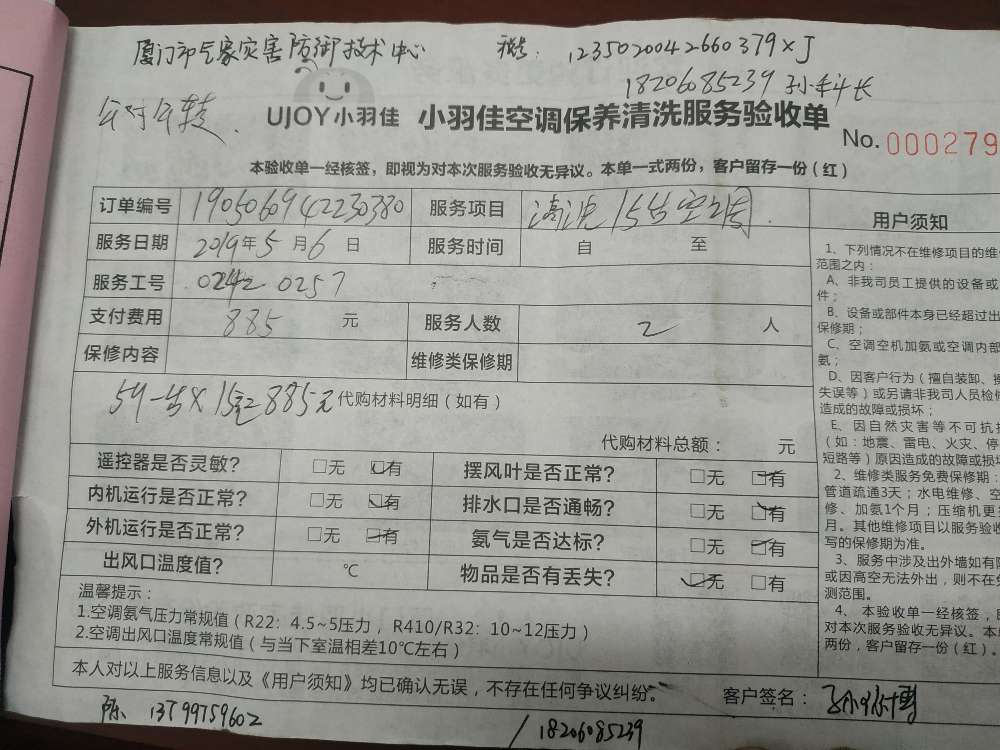 厦门市气象灾害防御技术中心 税号: 1235020042660379XJ
18206085239 孙科长
公对公转.
UJOY小羽佳 小羽佳空调保养清洗服务验收单
No. 000279
本验收单一经核签，即视为对本次服务验收无异议。本单一式两份，客户留存一份（红）
订单编号 1905060942230380 服务项目 清洗15台空调.
服务日期 2019年5月6日 服务时间 自 至
服务工号 0242 0257
支付费用 885 元 服务人数 2 人
保修内容 维修类保修期
59一台X15台=885元 代购材料明细（如有）
代购材料总额： 元
遥控器是否灵敏? □无 □有 摆风叶是否正常? □无 □有
内机运行是否正常? □无 □有 排水口是否通畅? □无 □有
外机运行是否正常? □无 □有 氨气是否达标? □无 □有
出风口温度值? ℃ 物品是否有丢失? □无 □有
温馨提示：
1.空调氨气压力常规值（R22：4.5~5压力，R410/R32：10~12压力）
2.空调出风口温度常规值（与当下室温相差10℃左右）
本人对以上服务信息以及《用户须知》均已确认无误，不存在任何争议纠纷。 客户签名：
陈 13799759602 / 18206085239
用户须知
1、下列情况不在维修项目的维
范围之内：
A、非我司员工提供的设备或
件；
B、设备或部件本身已经超过出
保修期；
C、空调空机加氨或空调内部
氨；
D、因客户行为（擅自装卸、搬
失误等）或另请非我司人员检修
造成的故障或损坏；
E、因自然灾害等不可抗
（如：地震、雷电、火灾、停
短路等）原因造成的故障或损坏
2、维修类服务免费保修期：
管道疏通3天；水电维修、空
修、加氨1个月；压缩机更
月。其他维修项目以服务验收
写的保修期为准。
3、服务中涉及出外墙如有
或因高空无法外出，则不在
测范围。
4、本验收单一经核签，
对本次服务验收无异议。本
两份，客户留存一份（红）。